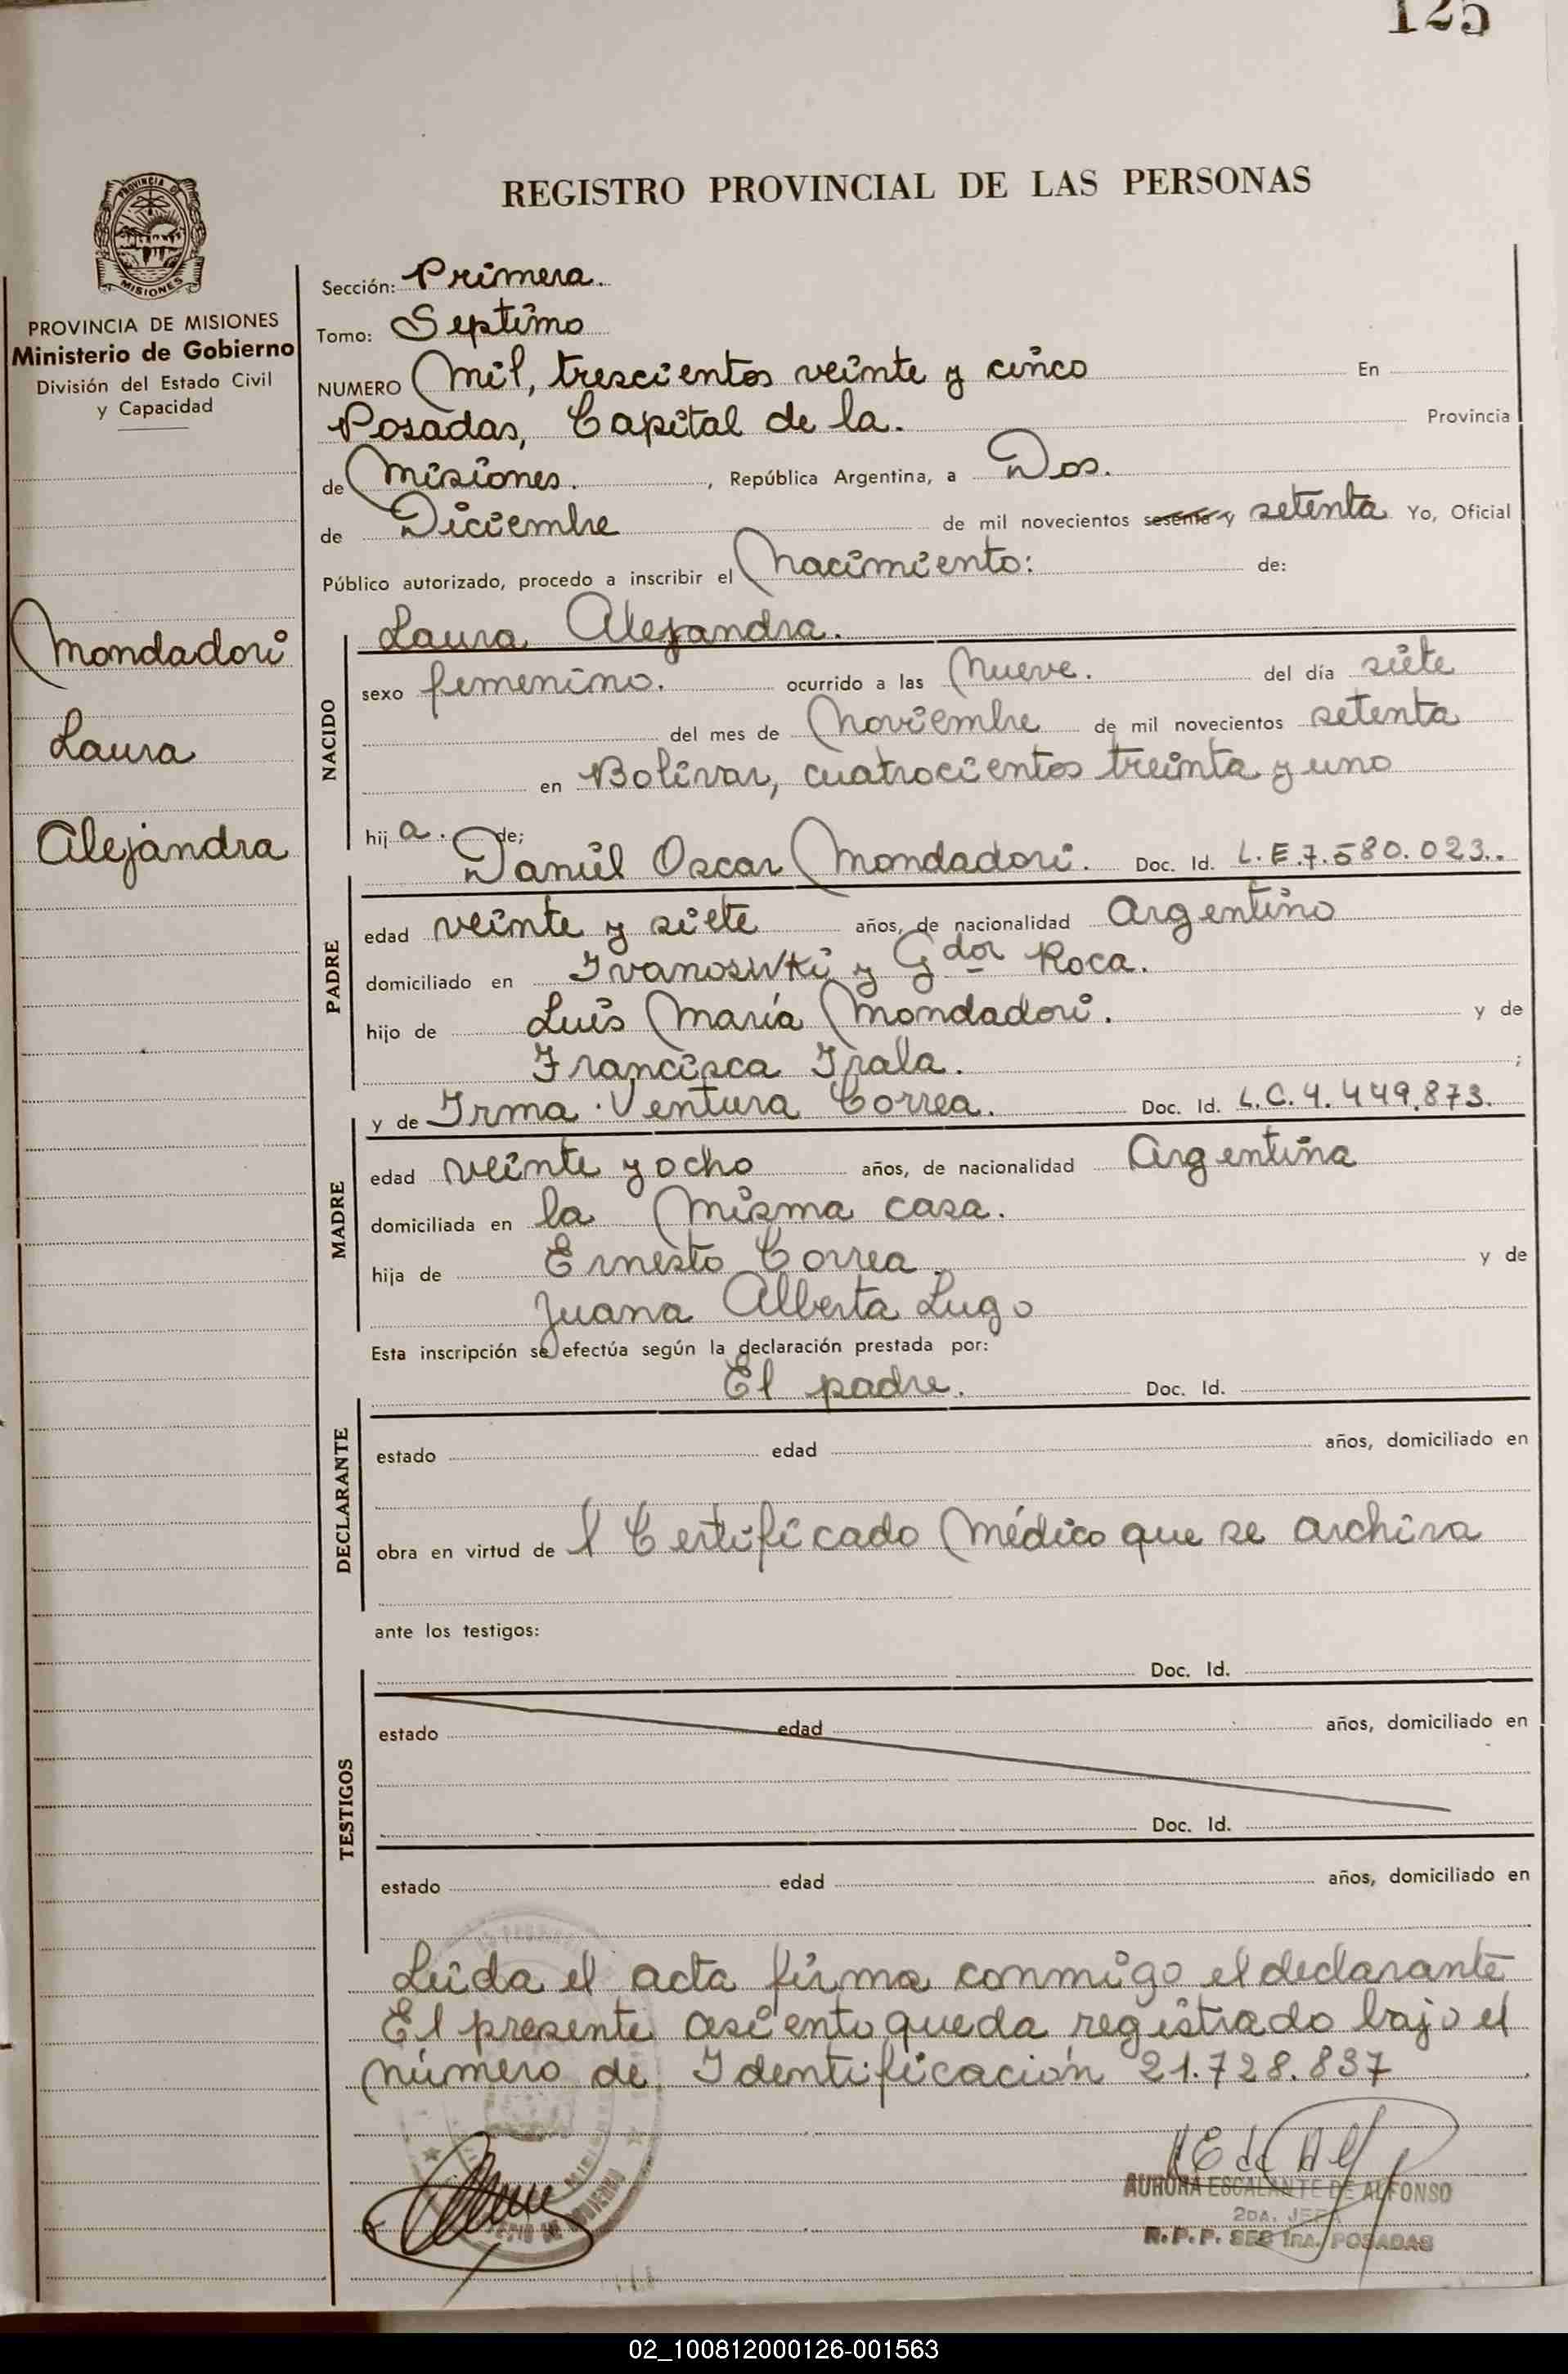 125
REGISTRO PROVINCIAL DE LAS PERSONAS
PROVINCIA DE MISIONES
PROVINCIA DE MISIONES
Ministerio de Gobierno
División del Estado Civil
y Capacidad
Mondadori
Laura
Alejandra
Sección: Primera.
Tomo: Septimo
NUMERO Mil, trescientos veinte y cinco En
Posadas, Capital de la. Provincia
de Misiones. , República Argentina, a Dos.
de Diciembre de mil novecientos sesenta y setenta Yo, Oficial
Público autorizado, procedo a inscribir el Nacimiento: de:
Laura Alejandra.
NACIDO
sexo femenino. ocurrido a las Nueve. del día siete
del mes de Noviembre de mil novecientos setenta
en Bolívar, cuatrocientos treinta y uno
hij a. de;
Daniel Oscar Mondadori. Doc. Id. L.E.7.580.023.
PADRE
edad veinte y siete años, de nacionalidad Argentino
domiciliado en Ivanoswki y Gdor Roca.
hijo de Luis María Mondadori. y de
Francisca Irala. ;
y de Irma Ventura Correa. Doc. Id. L.C.4.449.873.
MADRE
edad veinte y ocho años, de nacionalidad Argentina
domiciliada en la Misma casa.
hija de Ernesto Correa. y de
Juana Alberta Lugo
Esta inscripción se efectúa según la declaración prestada por:
El padre. Doc. Id.
DECLARANTE
estado edad años, domiciliado en
obra en virtud de l Certificado Médico que se archiva
ante los testigos:
Doc. Id.
TESTIGOS
estado edad años, domiciliado en
Doc. Id.
estado edad años, domiciliado en
Leida el acta firma conmigo el declarante
El presente asiento queda registrado bajo el
número de Identificación 21.728.837
AURORA ESCALANTE DE ALFONSO
2DA. JEFA
R.P.P. SEC 1RA. POSADAS
02_100812000126-001563